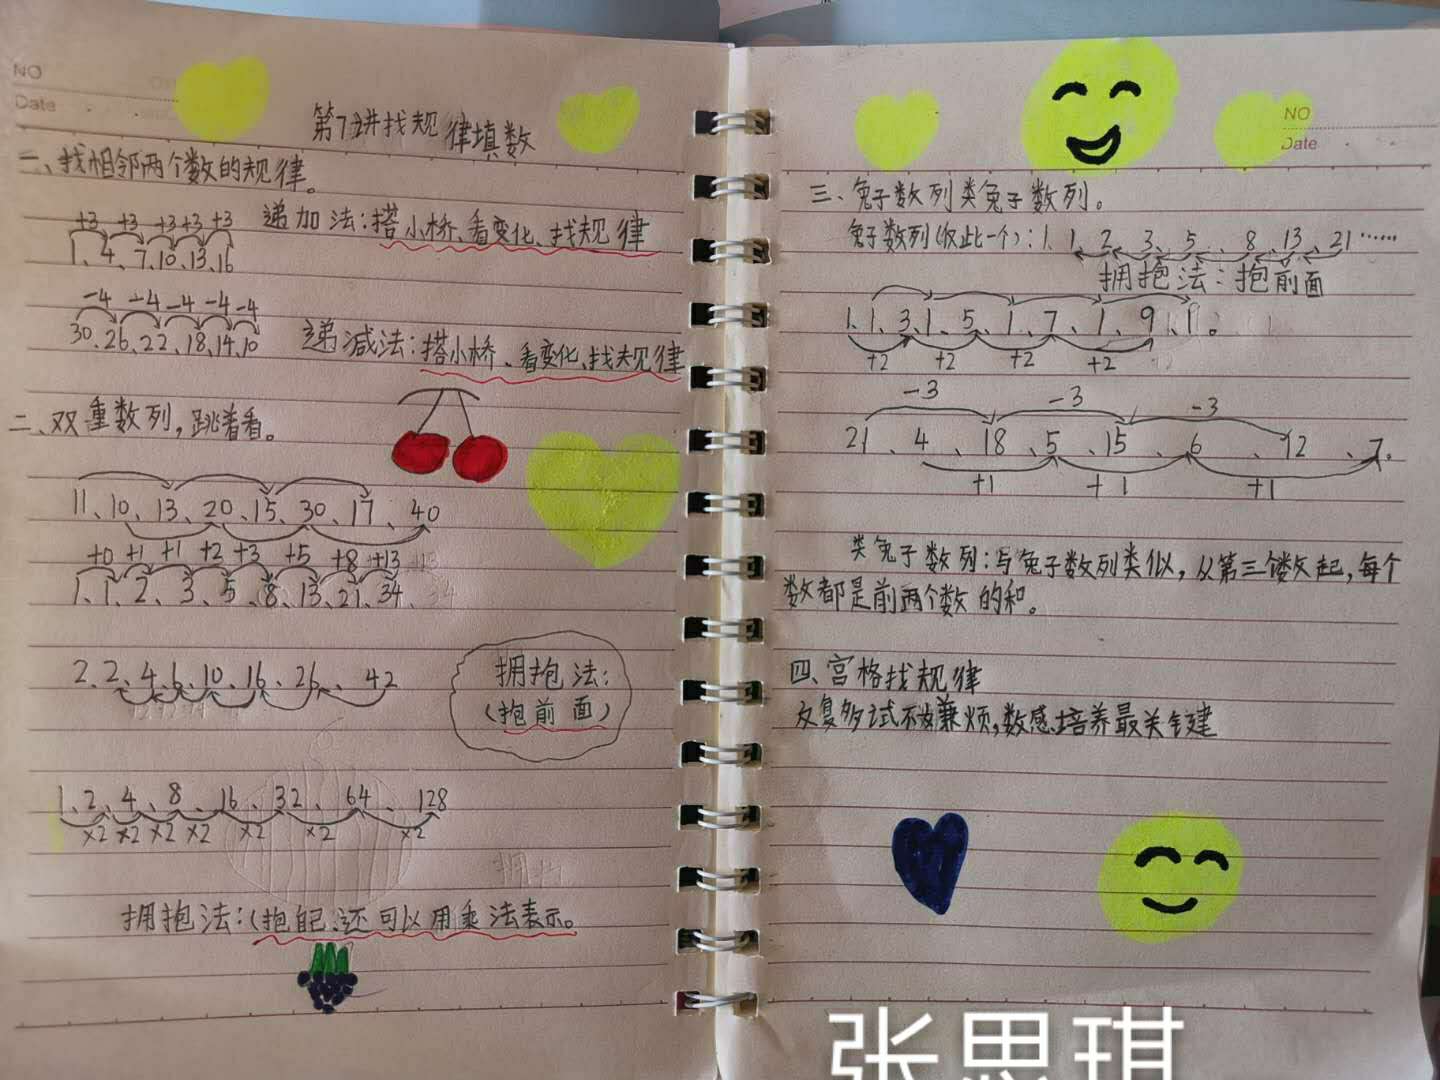 NO
Date
第7讲找规律填数
一、找相邻两个数的规律。
+3 +3 +3 +3 +3
1、4、7、10、13、16
递加法：搭小桥、看变化、找规律
-4 -4 -4 -4 -4
30、26、22、18、14、10
递减法：搭小桥、看变化、找规律
二、双重数列，跳着看。
11、10、13、20、15、30、17、40
+0 +1 +1 +2 +3 +5 +8 +13
1、1、2、3、5、8、13、21、34
2、2、4、6、10、16、26、42
拥抱法：
（抱前面）
1、2、4、8、16、32、64、128
×2 ×2 ×2 ×2 ×2 ×2 ×2
拥抱法：（抱自己、还可以用乘法表示。
NO
Date
三、兔子数列类兔子数列。
兔子数列（仅此一个）：1、1、2、3、5、8、13、21……
拥抱法：抱前面
1、1、3、1、5、1、7、1、9、1。
+2 +2 +2 +2
-3 -3 -3
21、4、18、5、15、6、12、7。
+1 +1 +1
类兔子数列：与兔子数列类似，从第三个数起，每个
数都是前两个数的和。
四、宫格找规律
反复多试不嫌烦，数感培养最关键
张思琪